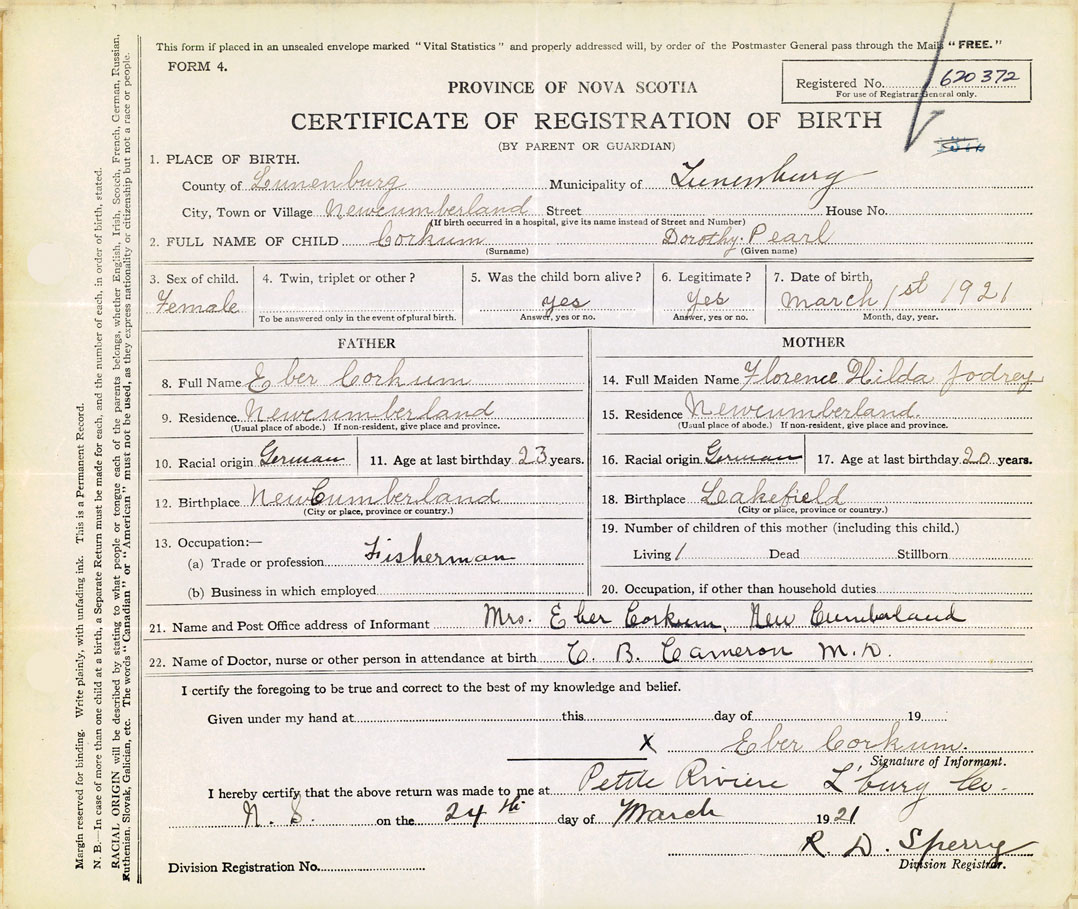 This form if placed in an unsealed envelope marked "Vital Statistics" and properly addressed will, by order of the Postmaster General pass through the Mails "FREE."
FORM 4.
Registered No. 620372
For use of Registrar General only.
PROVINCE OF NOVA SCOTIA
CERTIFICATE OF REGISTRATION OF BIRTH
(BY PARENT OR GUARDIAN)
1. PLACE OF BIRTH.
County of Lunenburg Municipality of Lunenburg
City, Town or Village Newcumberland Street House No.
(If birth occurred in a hospital, give its name instead of Street and Number)
2. FULL NAME OF CHILD Corkum Dorothy Pearl
(Surname) (Given name)
3. Sex of child. 4. Twin, triplet or other? 5. Was the child born alive? 6. Legitimate? 7. Date of birth,
Female yes Yes March 1st 1921
To be answered only in the event of plural birth. Answer, yes or no. Answer, yes or no. Month, day, year.
FATHER
8. Full Name Eber Corkum
9. Residence. Newcumberland
(Usual place of abode.) If non-resident, give place and province.
10. Racial origin German 11. Age at last birthday 23 years.
12. Birthplace New Cumberland
(City or place, province or country.)
13. Occupation:—
(a) Trade or profession Fisherman
(b) Business in which employed
MOTHER
14. Full Maiden Name Florence Hilda Jodrey
15. Residence Newcumberland.
(Usual place of abode.) If non-resident, give place and province.
16. Racial origin German 17. Age at last birthday 20 years.
18. Birthplace Leakefield
(City or place, province or country.)
19. Number of children of this mother (including this child.)
Living 1 Dead Stillborn
20. Occupation, if other than household duties
21. Name and Post Office address of Informant Mrs. Eber Corkum, New Cumberland
22. Name of Doctor, nurse or other person in attendance at birth C. B. Cameron M.D.
I certify the foregoing to be true and correct to the best of my knowledge and belief.
Given under my hand at this day of 19
X Eber Corkum.
Signature of Informant.
I hereby certify that the above return was made to me at Petite Riviere L'burg Co.
N. S. on the 24th day of March 1921
R. D. Sperry
Division Registrar.
Division Registration No.
Margin reserved for binding. Write plainly, with unfading ink. This is a Permanent Record.
N. B.—In case of more than one child at a birth, a Separate Return must be made for each, and the number of each, in order of birth, stated.
RACIAL ORIGIN will be described by stating to what people or tongue each of the parents belongs, whether English, Irish, Scotch, French, German, Russian,
Ruthenian, Slovak, Galician, etc. The words "Canadian" or "American" must not be used, as they express nationality or citizenship but not a race or people.